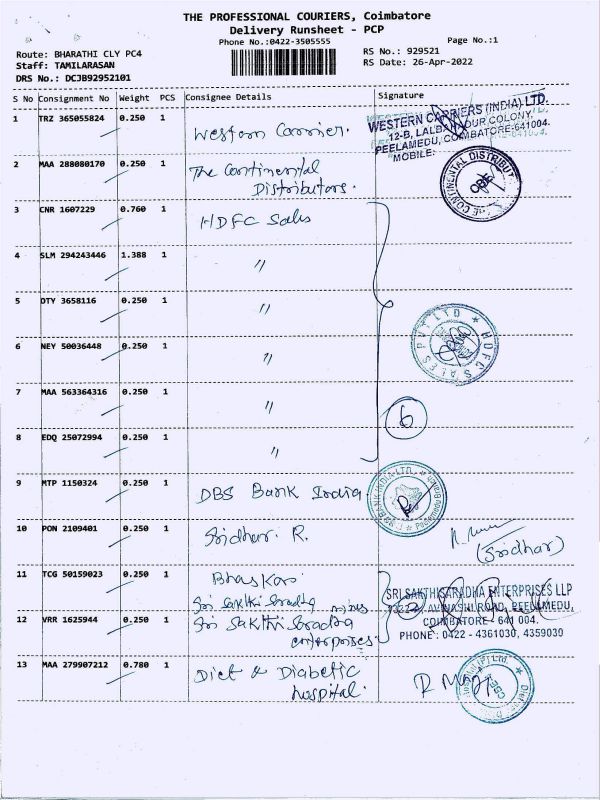 THE PROFESSIONAL COURIERS, Coimbatore
Delivery Runsheet - PCP
Phone No.:0422-3505555
Page No.:1
Route: BHARATHI CLY PC4
RS No.: 929521
Staff: TAMILARASAN
RS Date: 26-Apr-2022
DRS No.: DCJB92952101
S No Consignment No Weight PCS Consignee Details Signature
1 TRZ 365055824 0.250 1 Western Carrier.
WESTERN CARRIERS (INDIA) LTD.
12-B, LALBAHADUR COLONY,
PEELAMEDU, COIMBATORE-641004.
MOBILE:
2 MAA 288080170 0.250 1 The Continental
Distributors.
THE CONTINENTAL DISTRIBUT
CBE
3 CNR 1607229 0.760 1 HDFC Sales
4 SLM 294243446 1.388 1 "
5 OTY 3658116 0.250 1 "
6 NEY 50036448 0.250 1 "
HDFC SALES PVT LTD
7 MAA 563364316 0.250 1 "
6
8 EDQ 25072994 0.250 1 "
9 MTP 1150324 0.250 1 DBS Bank India
BANK INDIA LTD.
10 PON 2109401 0.250 1 Sridhar. R.
(Sridhar)
11 TCG 50159023 0.250 1 Bhaskar
Sri Sakthi Saradha mines
12 VRR 1625944 0.250 1 Sri Sakthi Saradha
enterprises.
SRI SAKTHI SARADHA ENTERPRISES LLP
AVINASHI ROAD, PEELAMEDU,
COIMBATORE - 641 004.
PHONE: 0422 - 4361030, 4359030
13 MAA 279907212 0.780 1 Diet & Diabetic
hospital.
(P) Ltd.